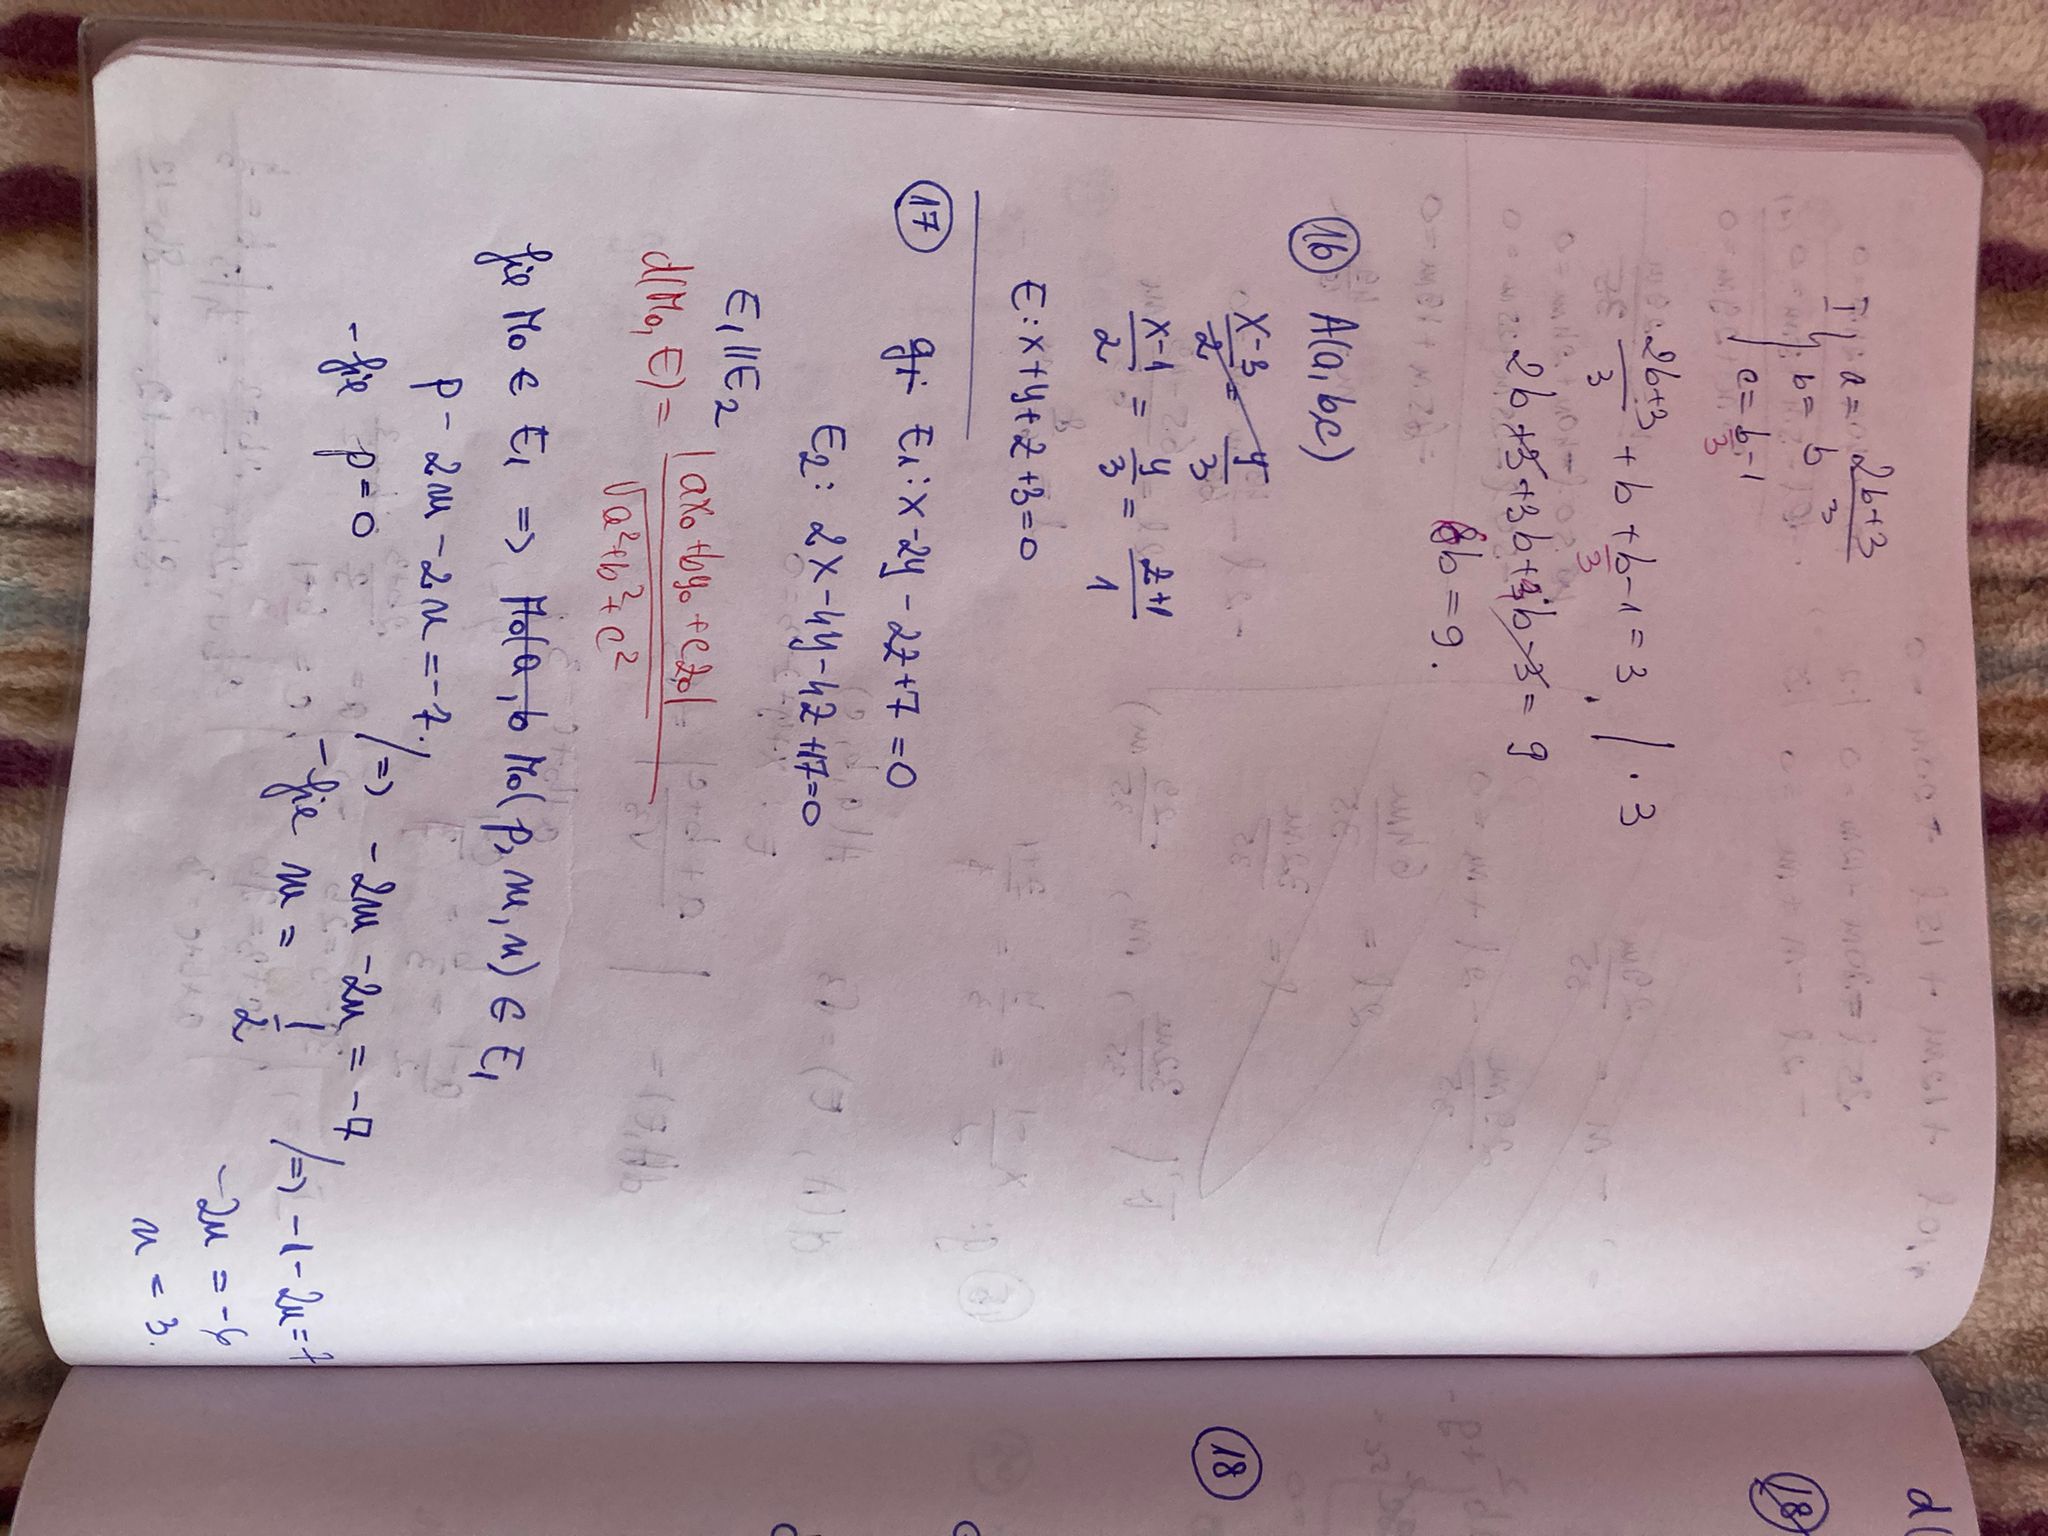 I a = 2b+3/3
b = b
c = b/3 - 1
2b+3/3 + b + b/3 - 1 = 3 / · 3
2b+3+3b+b-3 = 9
6b = 9.
16 A(a, b,c)
x-3/2 = y/3
x-1/2 = y/3 = z+1/1
E: x+y+z+3=0
17 g1: E1: x-2y-2z+7=0
E2: 2x-4y-4z+17=0
E1 || E2
d(M0, E) = |ax0+by0+cz0|/√a²+b²+c²
fie M0 ∈ E1 => M0(a, b M0(p, m, n) ∈ E1
p - 2m - 2n = -7.
- fie p=0 /=> -2m - 2n = -7
- fie m = 1/2 /=> -1-2n=7
-2n = -6
n = 3.
d(
18
18